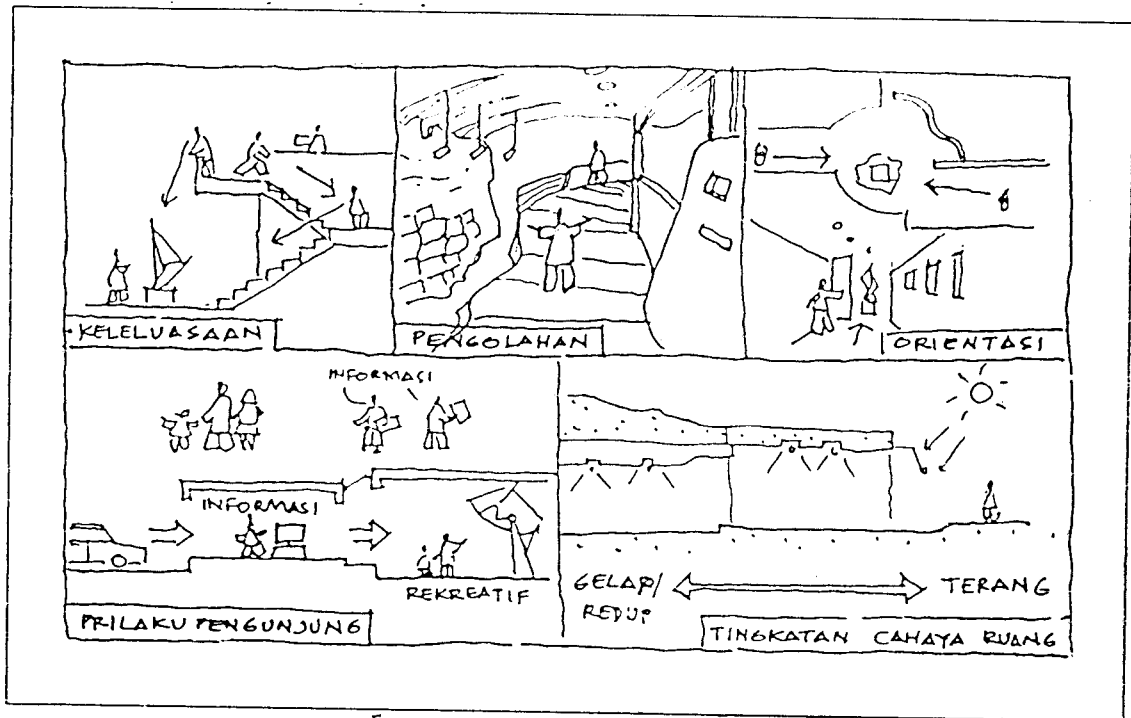 KELELUASAAN
PENGOLAHAN
ORIENTASI
INFORMASI
INFORMASI
REKREATIF
PRILAKU PENGUNJUNG
GELAP/
REDUP
TERANG
TINGKATAN CAHAYA RUANG